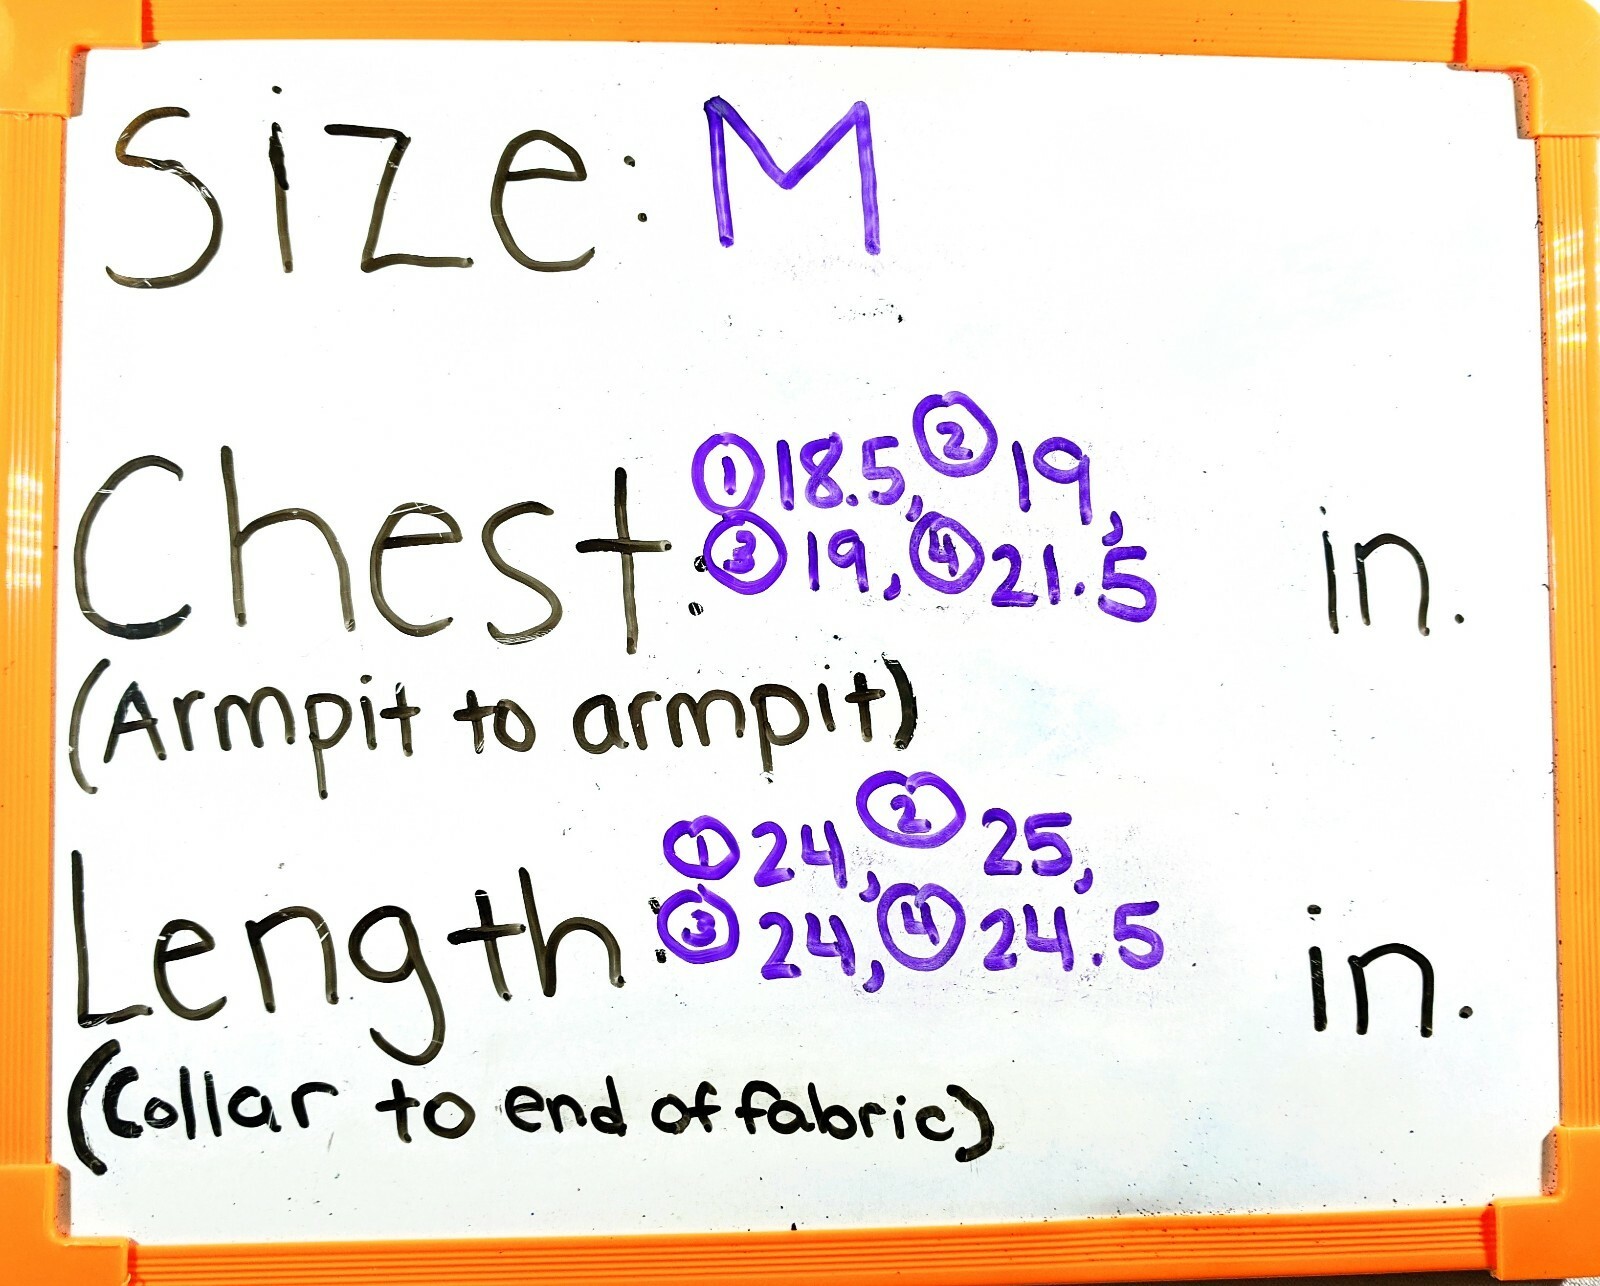 Size: M
Chest: ① 18.5, ② 19,
③ 19, ④ 21.5 in.
(Armpit to armpit)
Length: ① 24, ② 25,
③ 24, ④ 24.5 in.
(Collar to end of fabric)